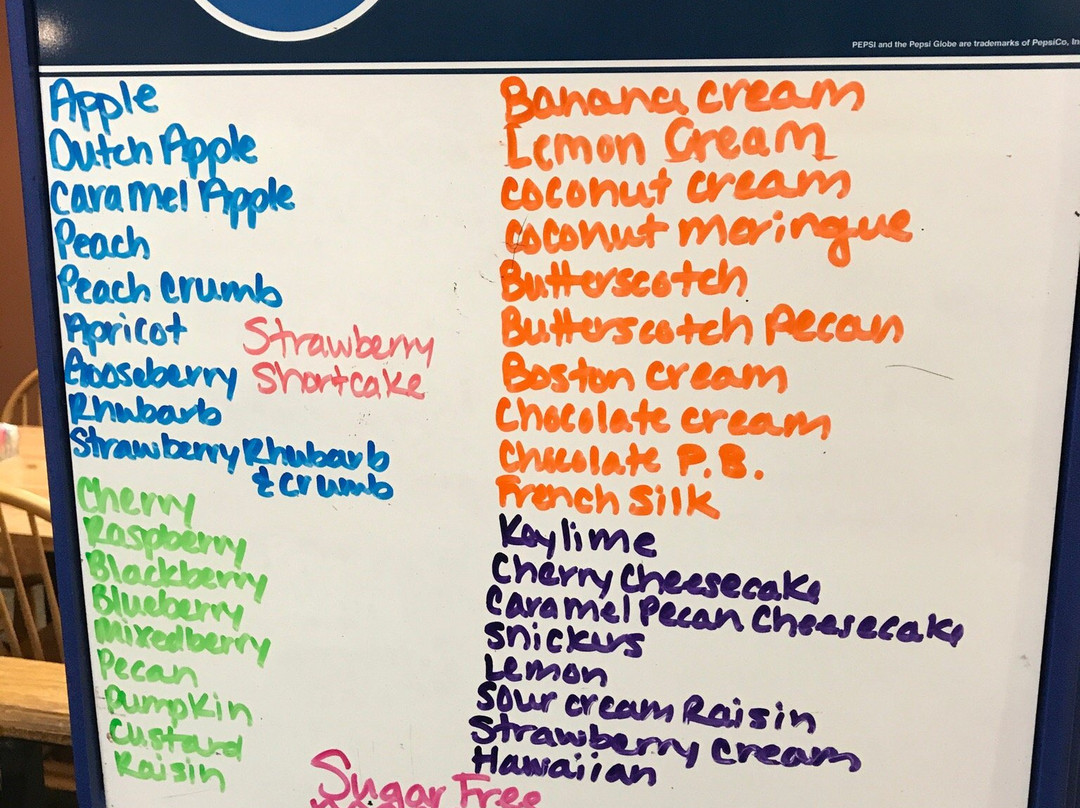 PEPSI and the Pepsi Globe are trademarks of PepsiCo, In
Apple
Dutch Apple
Caramel Apple
Peach
Peach Crumb
Apricot
Gooseberry
Rhubarb
Strawberry Rhubarb
& Crumb
Strawberry
Shortcake
Cherry
Raspberry
Blackberry
Blueberry
Mixedberry
Pecan
Pumpkin
Custard
Raisin
Banana cream
Lemon Cream
coconut cream
coconut meringue
Butterscotch
Butterscotch Pecan
Boston cream
Chocolate cream
Chocolate P.B.
French Silk
Keylime
Cherry Cheesecake
Caramel Pecan Cheesecake
Snickers
Lemon
Sour cream Raisin
Strawberry cream
Hawaiian
Sugar Free